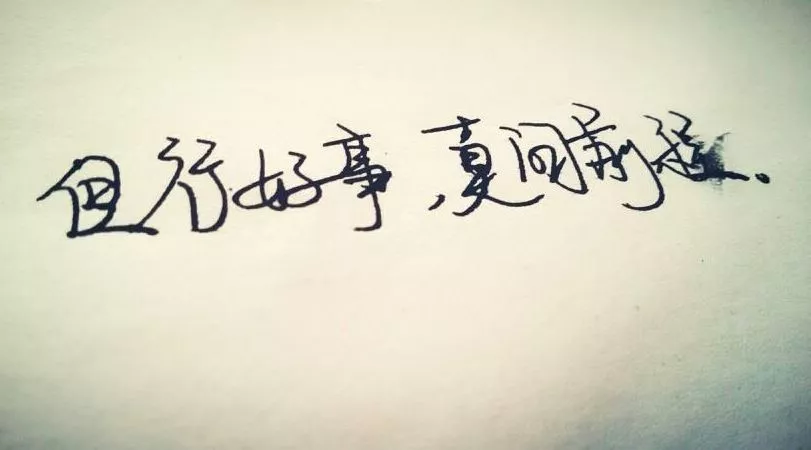 但行好事,莫问前程.